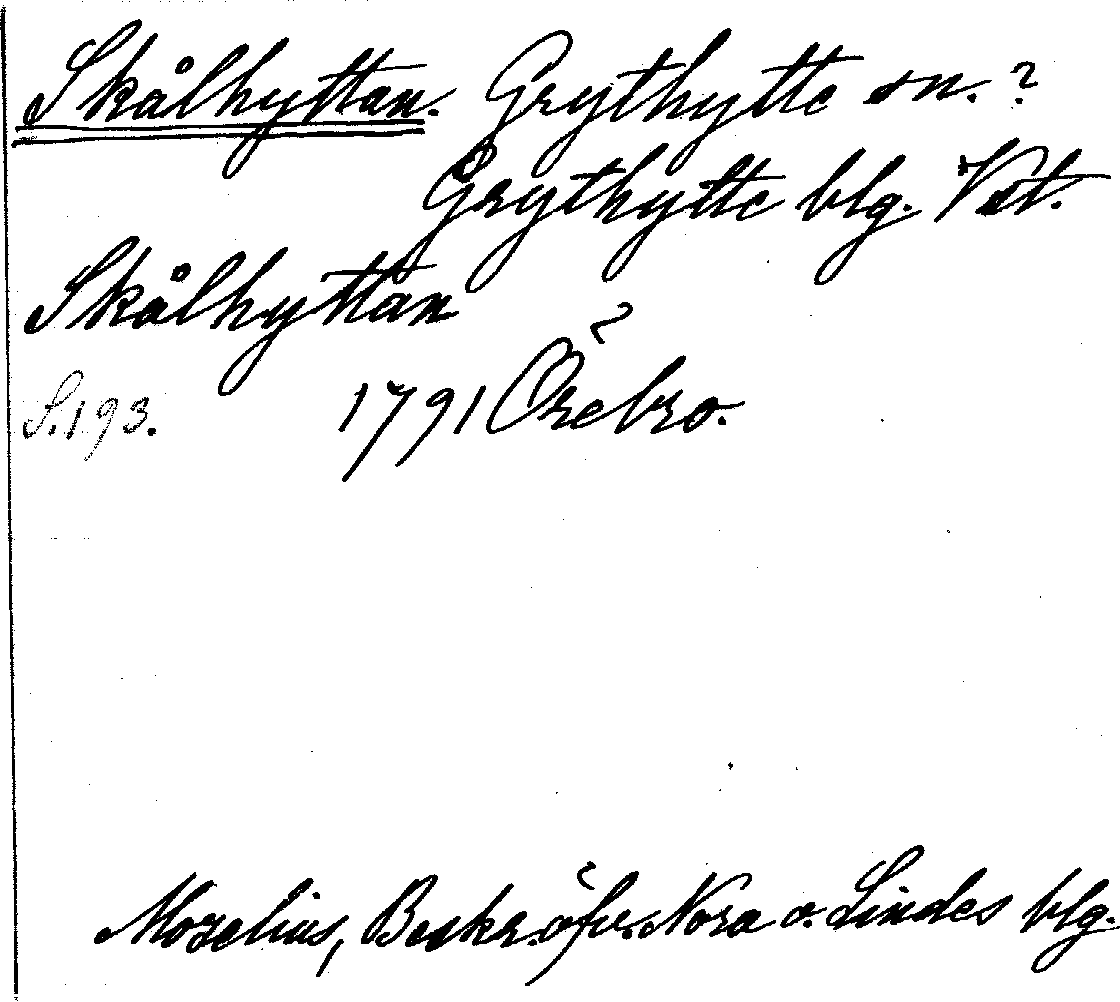 Skålhyttan. Grythytte sn.?
Grythytte blg. Vstm.
Skålhyttan
S.193. 1791 Örebro.
Mozelius, Beskr. öfv. Nora o. Lindes blg.